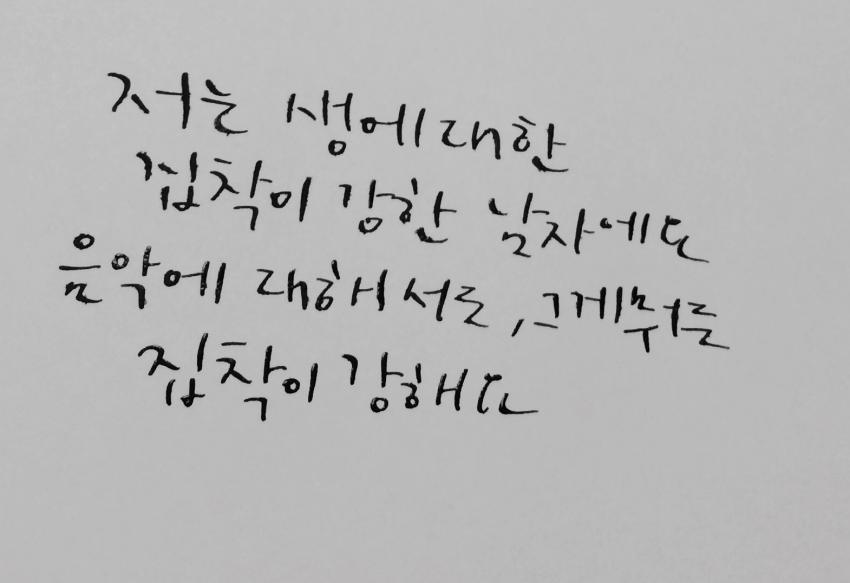 저는 생에 대한
집착이 강한 남자에요
음악에 대해서도, 그게 뭐든
집착이 강해요